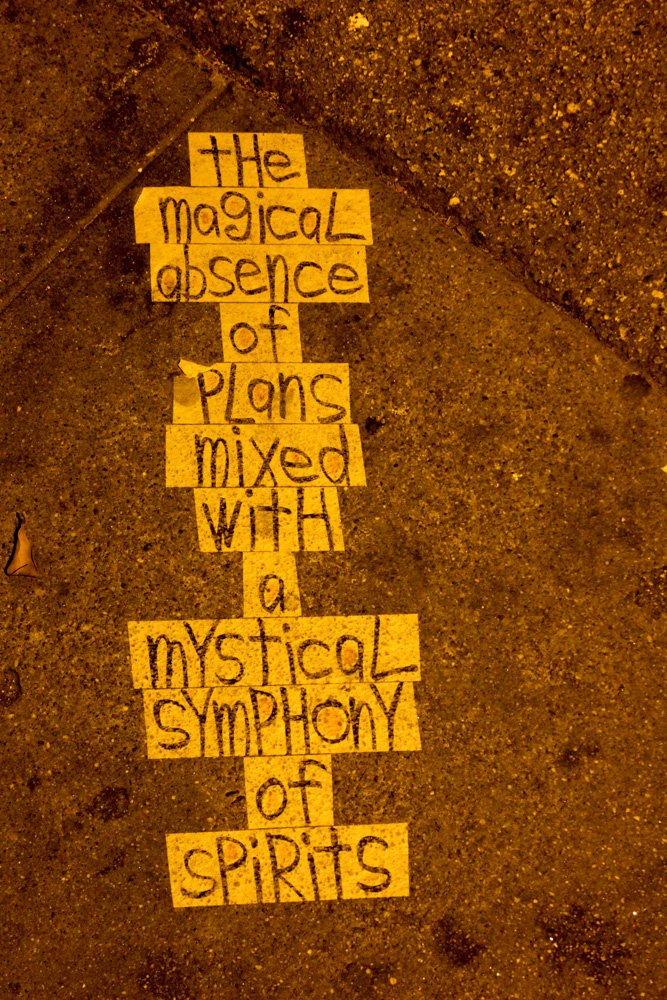 tHe
magicaL
absence
of
PLanS
mixed
witH
a
mYsticaL
SYmPHonY
of
SPiRitS